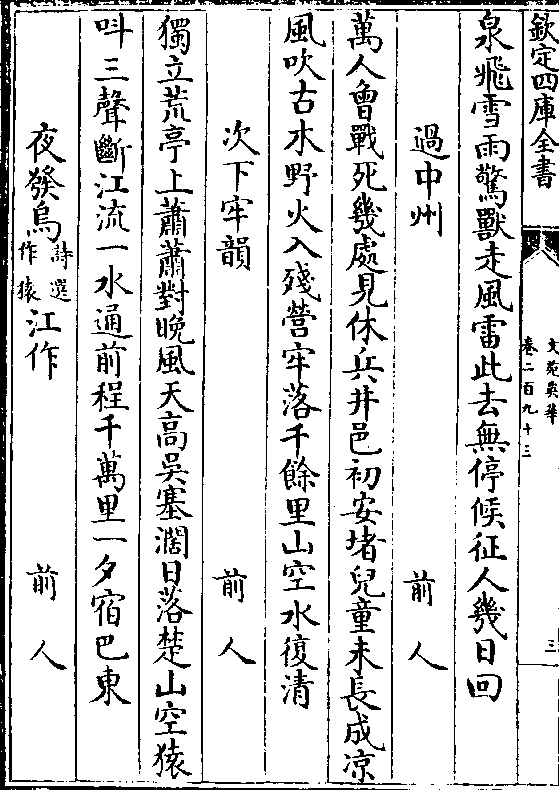 欽定四庫全書
文苑英華
卷二百九十三
三
泉飛雪雨驚獸走風雷此去無停候征人幾日回
過中州
前人
萬人曾戰死幾處見休兵井邑初安堵兒童未長成凉
風吹古木野火入殘營牢落千餘里山空水復清
次下牢韻
前人
獨立荒亭上蕭蕭對晚風天高吳塞濶日落楚山空猿
呌三聲斷江流一水通前程千萬里一夕宿巴東
夜發烏詩選作猿江作
前人